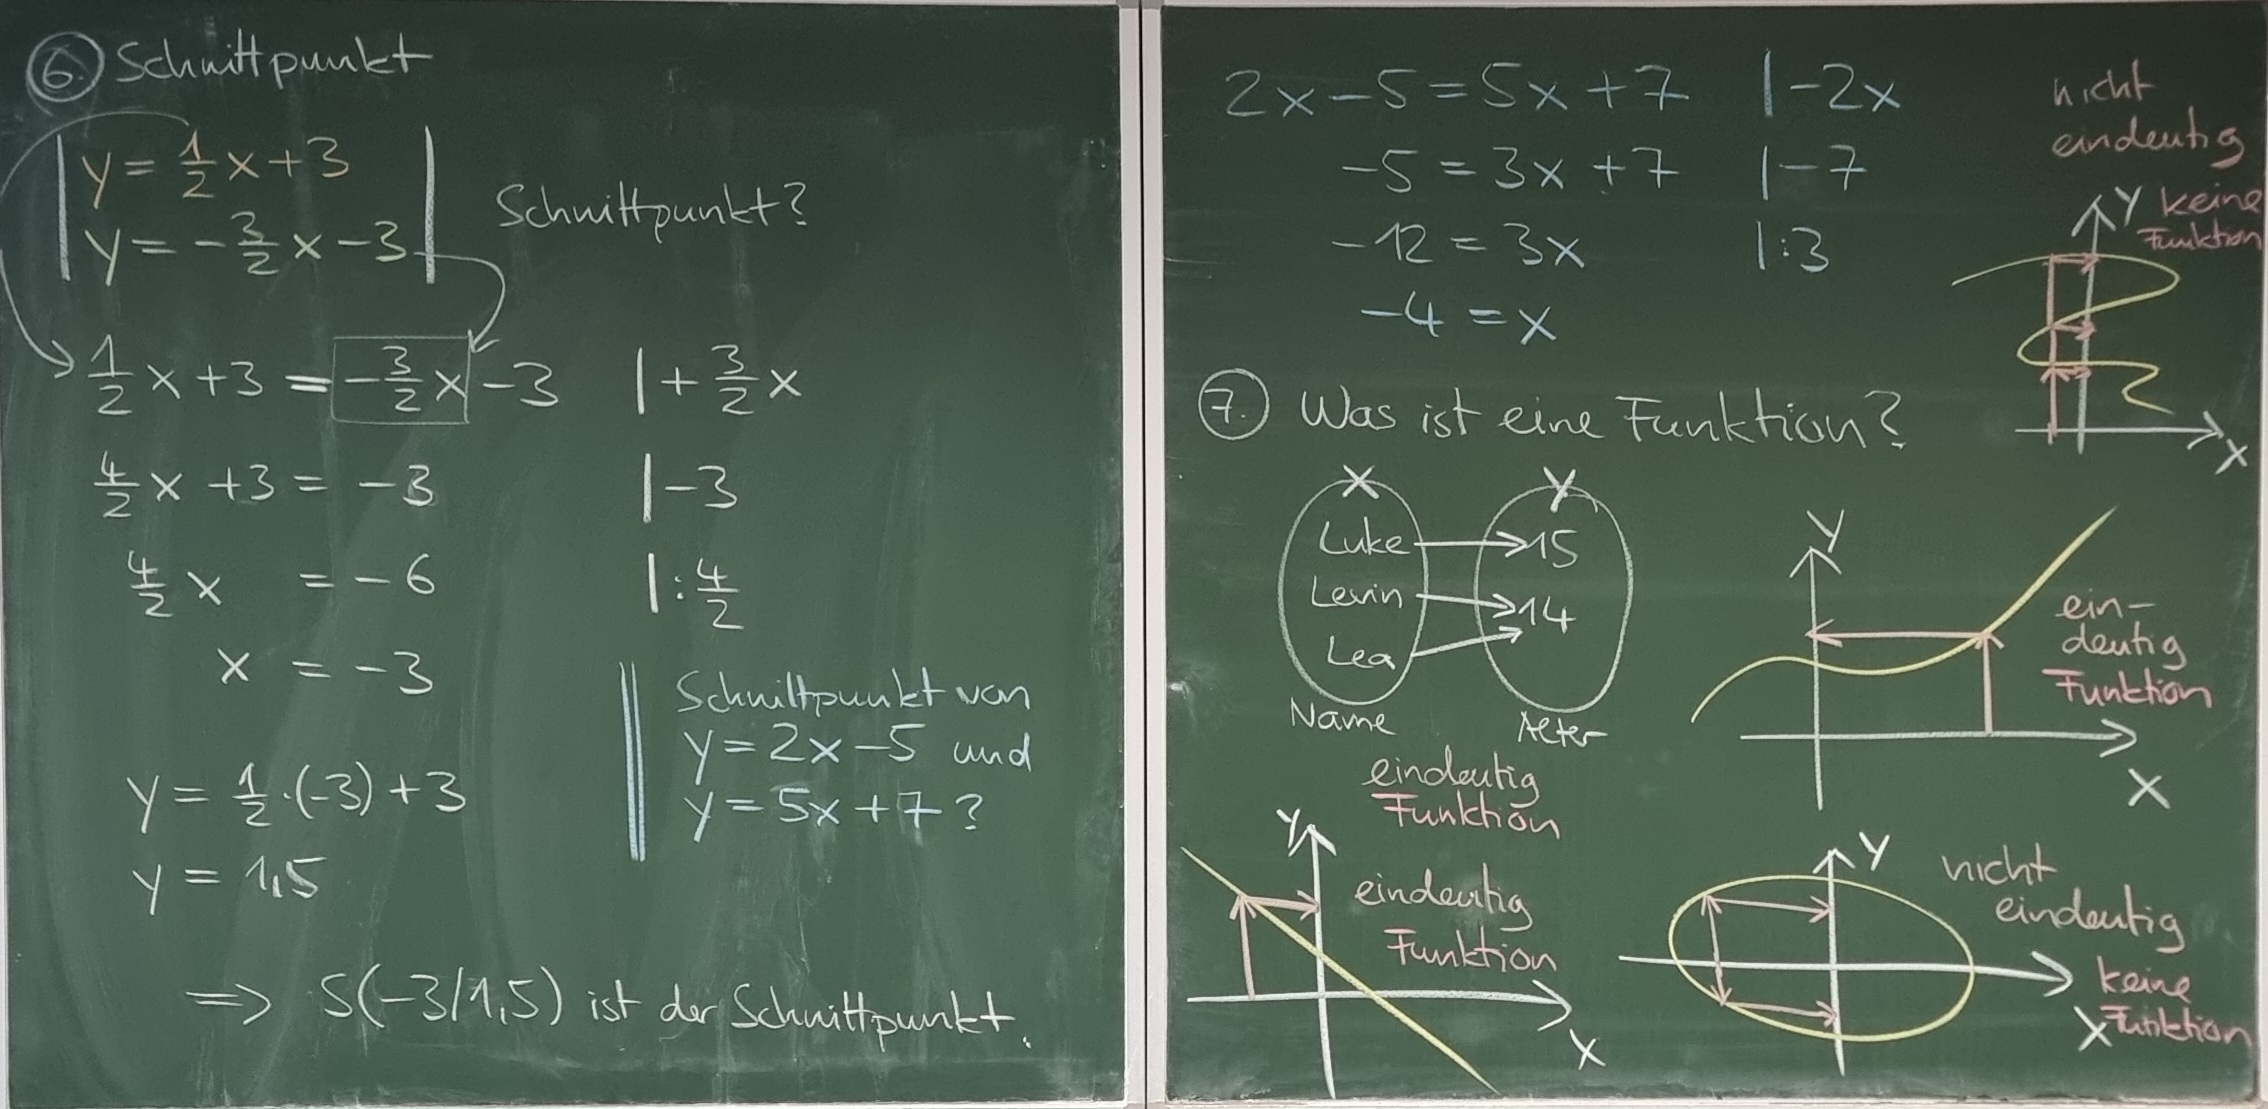 6. Schnittpunkt
y = 1/2 x + 3
y = - 3/2 x - 3
Schnittpunkt?
1/2 x + 3 = - 3/2 x - 3 | + 3/2 x
4/2 x + 3 = - 3 | - 3
4/2 x = - 6 | : 4/2
x = - 3
y = 1/2 · (-3) + 3
y = 1,5
=> S(-3/1,5) ist der Schnittpunkt.
Schnittpunkt von
y = 2x - 5 und
y = 5x + 7 ?
2x - 5 = 5x + 7 | - 2x
- 5 = 3x + 7 | - 7
- 12 = 3x | : 3
- 4 = x
nicht
eindeutig
keine
Funktion
y
x
7. Was ist eine Funktion?
X Y
Luke 15
Levin 14
Lea
Name Alter
eindeutig
Funktion
y
x
ein-
deutig
Funktion
y
x
eindeutig
Funktion
y
x
nicht
eindeutig
keine
Funktion